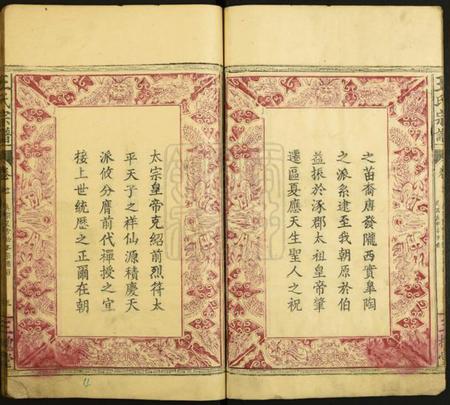 之苗裔唐發隴西實皐陶
之派系逮至我朝原於伯
益振於涿郡太祖皇帝肇
遷區夏應天生聖人之祝
太宗皇帝克紹前烈符太
平天子之祥仙源積慶天
派攸分膺前代禪授之宜
接上世統歷之正爾在朝
王氏宗譜
卷